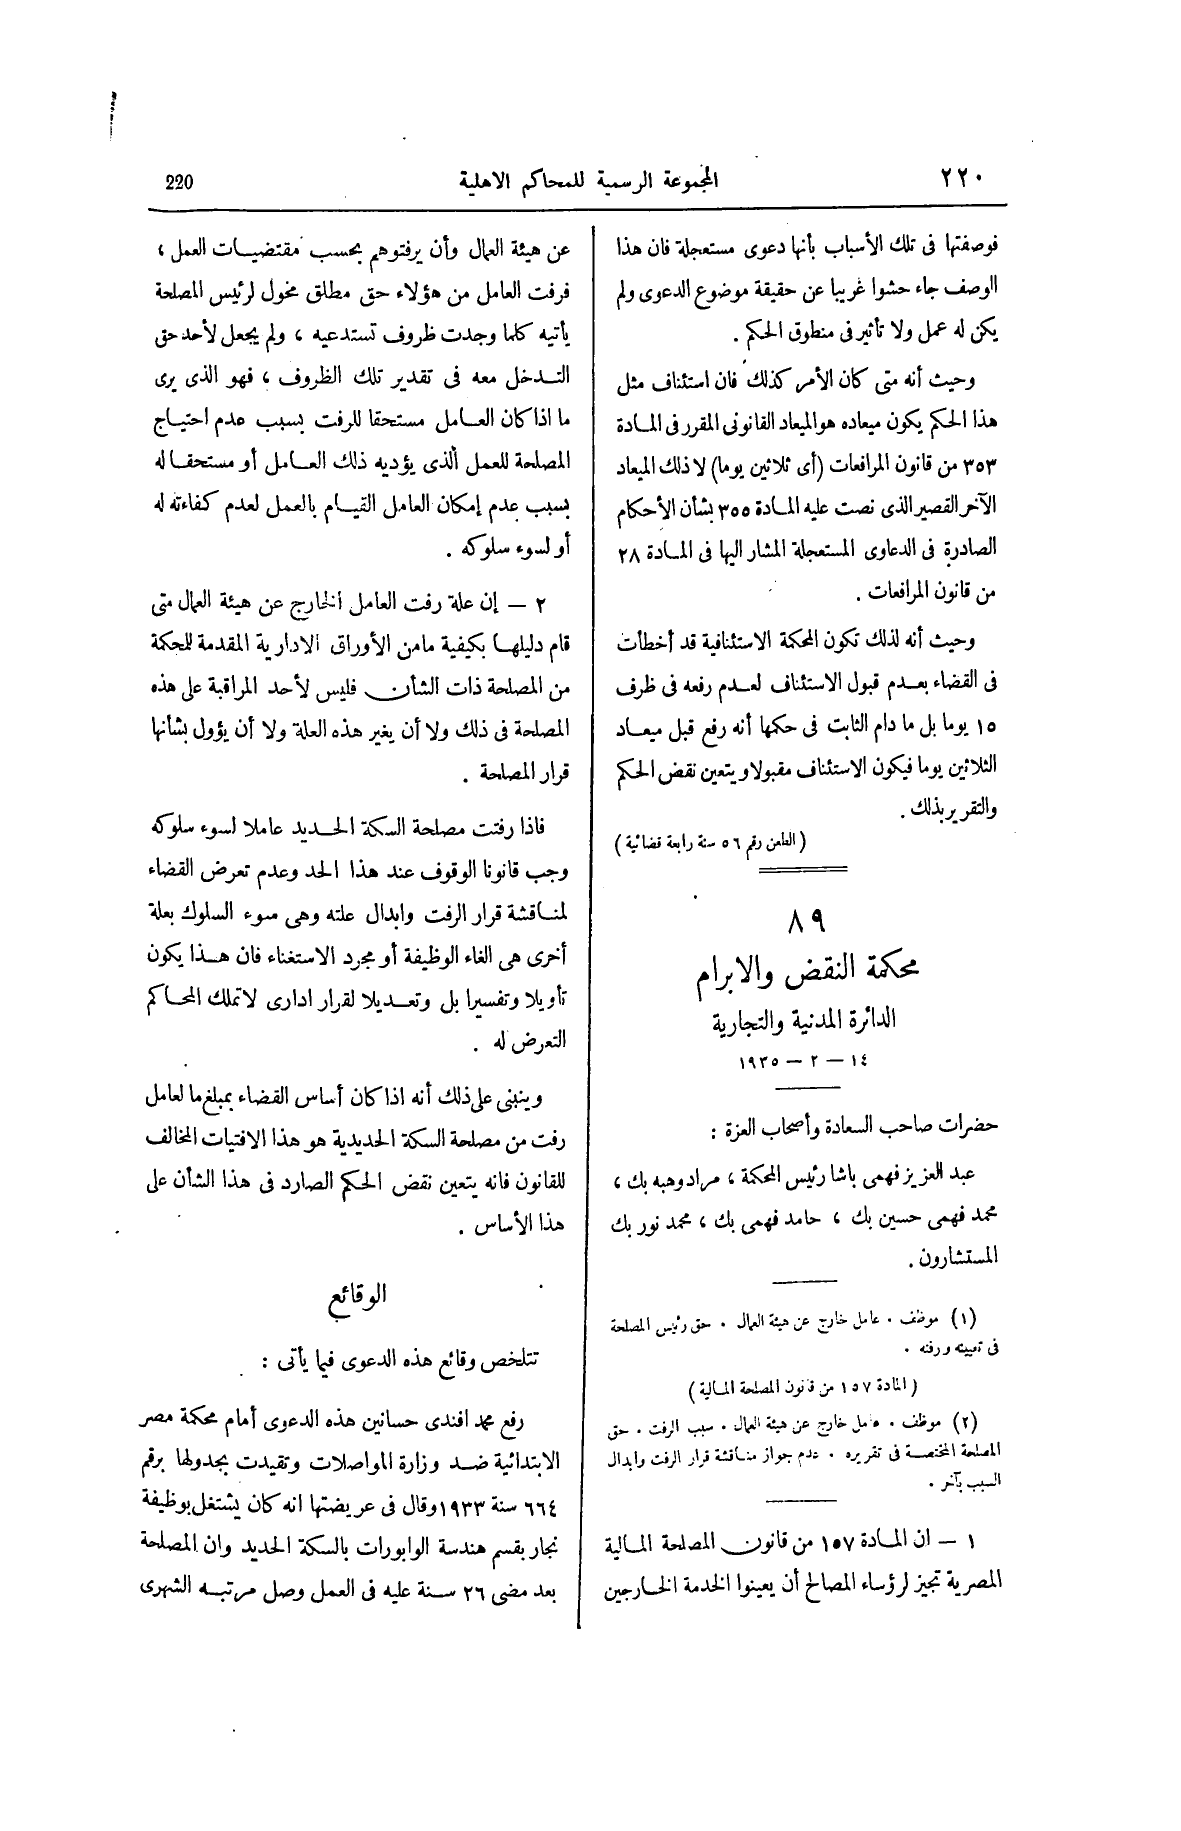 ٢٢٠ المجموعة الرسمية للمحاكم الاهلية 220
فوصفتها فى تلك الأسباب بأنها دعوى مستعجلة فان هذا
الوصف جاء حشوا غريبا عن حقيقة موضوع الدعوى ولم
يكن له عمل ولا تأثير فى منطوق الحكم .
وحيث أنه متى كان الأمر كذلك فان استئناف مثل
هذا الحكم يكون ميعاده هو الميعاد القانونى المقرر فى المادة
٣٥٣ من قانون المرافعات (أى ثلاثين يوما) لا ذلك الميعاد
الآخر القصير الذى نصت عليه المادة ٣٥٥ بشأن الأحكام
الصادرة فى الدعاوى المستعجلة المشار اليها فى المادة ٢٨
من قانون المرافعات .
وحيث أنه لذلك تكون المحكمة الاستئنافية قد أخطأت
فى القضاء بعدم قبول الاستئناف لعدم رفعه فى ظرف
١٥ يوما بل ما دام الثابت فى حكمها أنه رفع قبل ميعاد
الثلاثين يوما فيكون الاستئناف مقبولا ويتعين نقض الحكم
والتقرير بذلك .
( الطعن رقم ٥٦ سنة رابعة قضائية )
٨٩
محكمة النقض والابرام
الدائرة المدنية والتجارية
١٤ — ٢ — ١٩٣٥
حضرات صاحب السعادة وأصحاب العزة :
عبد العزيز فهمى باشا رئيس المحكمة ، مراد وهبه بك ،
محمد فهمى حسين بك ، حامد فهمى بك ، محمد نور بك
المستشارون .
(١) موظف . عامل خارج عن هيئة العمال . حق رئيس المصلحة
فى تعيينه ورفته .
( المادة ١٥٧ من قانون المصلحة المالية )
(٢) موظف . عامل خارج عن هيئة العمال . سبب الرفت . حق
المصلحة المختصة فى تقريره . عدم جواز مناقشة قرار الرفت وابدال
السبب بآخر .
١ — ان المادة ١٥٧ من قانون المصلحة المالية
المصرية تجيز لرؤساء المصالح أن يعينوا الخدمة الخارجين
عن هيئة العمال وأن يرفتوهم بحسب مقتضيات العمل ،
فرفت العامل من هؤلاء حق مطلق مخول لرئيس المصلحة
يأتيه كلما وجدت ظروف تستدعيه ، ولم يجعل لأحد حق
التدخل معه فى تقدير تلك الظروف ، فهو الذى يرى
ما اذا كان العامل مستحقا للرفت بسبب عدم احتياج
المصلحة للعمل الذى يؤديه ذلك العامل أو مستحقا له
بسبب عدم إمكان العامل القيام بالعمل لعدم كفاءته له
أو لسوء سلوكه .
٢ — إن علة رفت العامل الخارج عن هيئة العمال متى
قام دليلها بكيفية ما من الأوراق الادارية المقدمة للمحكمة
من المصلحة ذات الشأن فليس لأحد المراقبة على هذه
المصلحة فى ذلك ولا أن يغير هذه العلة ولا أن يؤول بشأنها
قرار المصلحة .
فاذا رفتت مصلحة السكة الحديد عاملا لسوء سلوكه
وجب قانونا الوقوف عند هذا الحد وعدم تعرض القضاء
لمناقشة قرار الرفت وابدال علته وهى سوء السلوك بعلة
أخرى هى الغاء الوظيفة أو مجرد الاستغناء فان هذا يكون
تأويلا وتفسيرا بل وتعديلا لقرار ادارى لا تملك المحاكم
التعرض له .
وينبنى على ذلك أنه اذا كان أساس القضاء بمبلغ ما لعامل
رفت من مصلحة السكة الحديدية هو هذا الافتيات المخالف
للقانون فانه يتعين نقض الحكم الصادر فى هذا الشأن على
هذا الأساس .
الوقائع
تتلخص وقائع هذه الدعوى فيما يأتى :
رفع محمد افندى حسانين هذه الدعوى أمام محكمة مصر
الابتدائية ضد وزارة المواصلات وتقيدت بجدولها برقم
٦٦٤ سنة ١٩٣٣ وقال فى عريضتها انه كان يشتغل بوظيفة
نجار بقسم هندسة الوابورات بالسكة الحديد وان المصلحة
بعد مضى ٢٦ سنة عليه فى العمل وصل مرتبه الشهرى